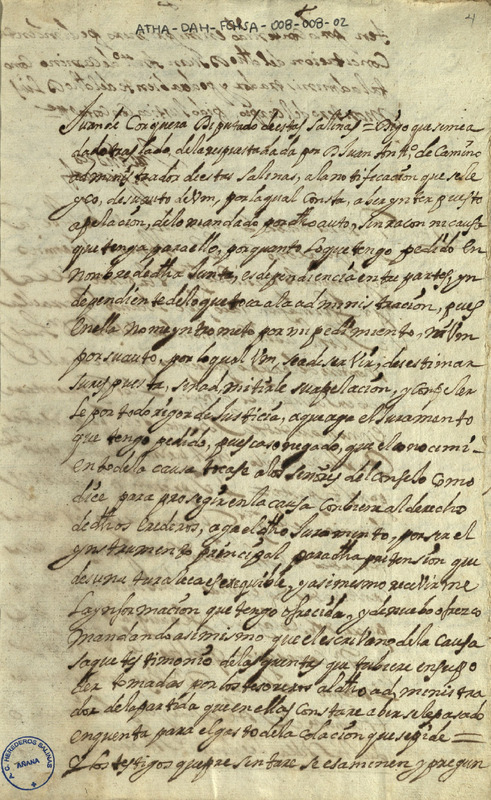 ATHA-DAH-FGHSA-008-008-02
4
Juan de Corquera Diputado de estas Salinas = Digo que se me a
dado traslado, de la respuesta dada por D Juan Antto. de Camino
administrador de estas Salinas, a la notificacion que se le
yço, de su auto de Vm, por la qual Consta, aser ynterpuesto
apelacion, de lo mandado por dho auto, sin racon ni causa
que tenga para ello, por quanto lo que tengo pedido En
nombre de dha Junta, es dependiencia entre partes, yn
dependiente de lo que toca a la administracion, pues
En ella no me yntrometo por mi pedimiento, ni Vm
por su auto, por lo qual Vm, sea de serVir, desestimar
su respuesta, sin admitirle su apelacion, y
por todo rigor de Justicia, a que aga el Juramento
que tengo pedido, pues caso negado, que el conocimi-
ento de la causa tocase a los señores del Consejo Como
dice para proseguir en la causa Conbiene al derecho
de dhos Erederos, aga el dho Juramento, por ser el
ynstrumento principal para dha pretension que
de su naturaleca es exequible, y asi mesmo reciVirme
La ynformacion que tengo ofrecida, y de nuebo ofrezco
mandando asi mismo que el escriVano de la Causa
saque testimonio de las quentas que tubiere en su po
der tomadas por los tesoreros al dho administra
dor de la partida que en ellas Constare aberse le pasado
en quenta para el gasto de la Colacion que se pide =
Y los testigos que presentare se esaminen y pregun
C. HEREDEROS SALINAS
AÑANA